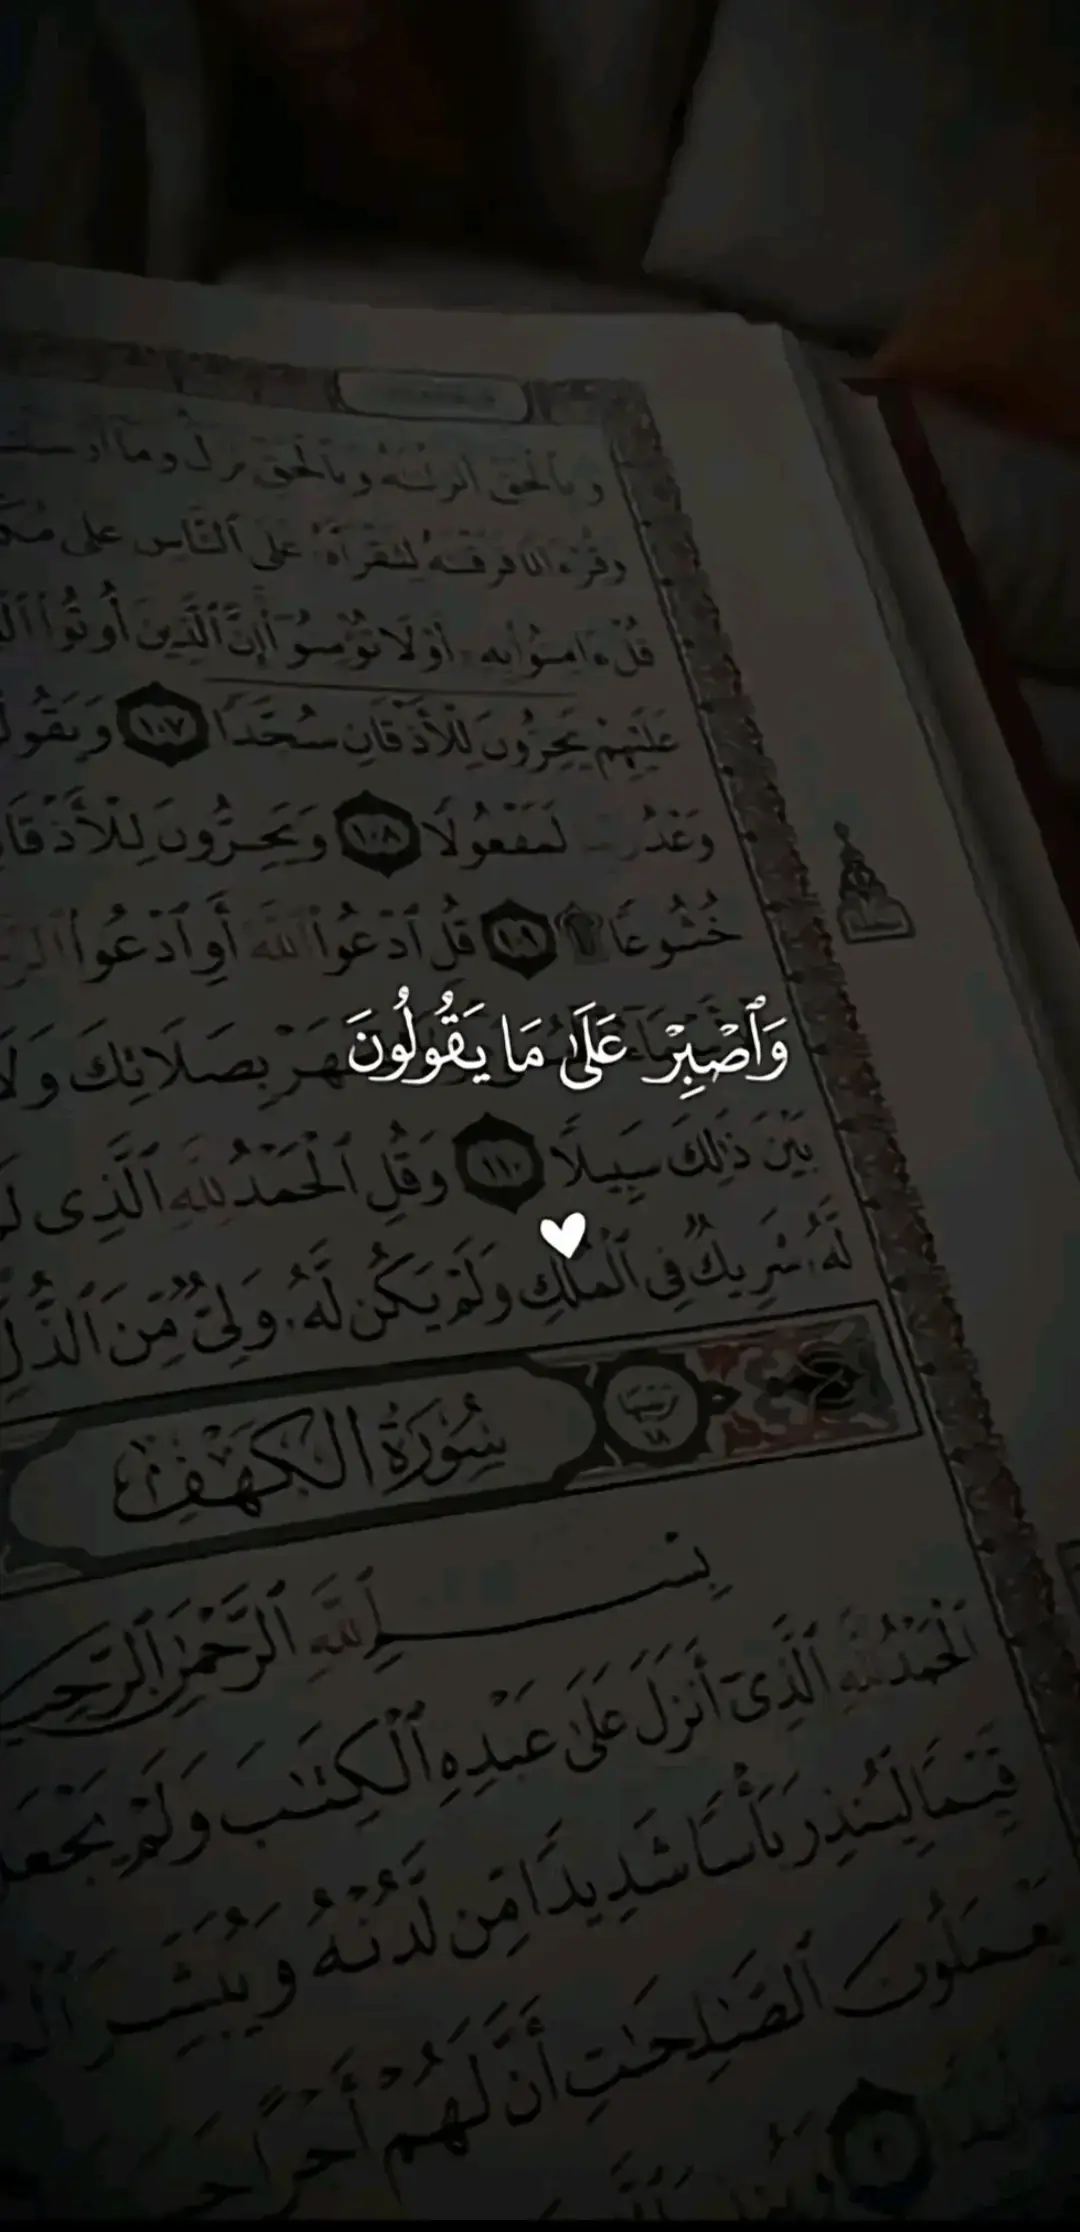 وبالحق أنزلنه وبالحق نزل وما أرسلنـ
وقرءانا فرقنه لتقرأه على الناس على مكـ
قل ءامنوا به أو لا تؤمنوا إن الذين أوتوا
عليهم يخرون للأذقان سجدا ١٠٧ ويقولـ
وعد لمفعولا ١٠٨ ويخرون للأذقا
خشوعا ۩ ١٠٩ قل ادعوا الله أو ادعوا
سجدة
وَٱصۡبِرۡ عَلَىٰ مَا يَقُولُونَ
بصلاتك ولا
بَيْنَ ذَٰلِكَ سَبِيلًا ١١٠ وَقُلِ ٱلْحَمْدُ لِلَّهِ ٱلَّذِى لَمْ
لَّهُۥ شَرِيكٌ فِى ٱلْمُلْكِ وَلَمْ يَكُن لَّهُۥ وَلِىٌّ مِّنَ ٱلذُّلِّ
ترتيبها ١٨
سُورَةُ الكَهْفِ
بِسْمِ اللَّهِ الرَّحْمَٰنِ الرَّحِيـ
ٱلْحَمْدُ لِلَّهِ ٱلَّذِىٓ أَنزَلَ عَلَىٰ عَبْدِهِ ٱلْكِتَٰبَ وَلَمْ يَجْعَل
قَيِّمًا لِّيُنذِرَ بَأْسًا شَدِيدًا مِّن لَّدُنْهُ وَيُبَشِّرَ
يَعْمَلُونَ ٱلصَّٰلِحَٰتِ أَنَّ لَهُمْ أَجْرًا